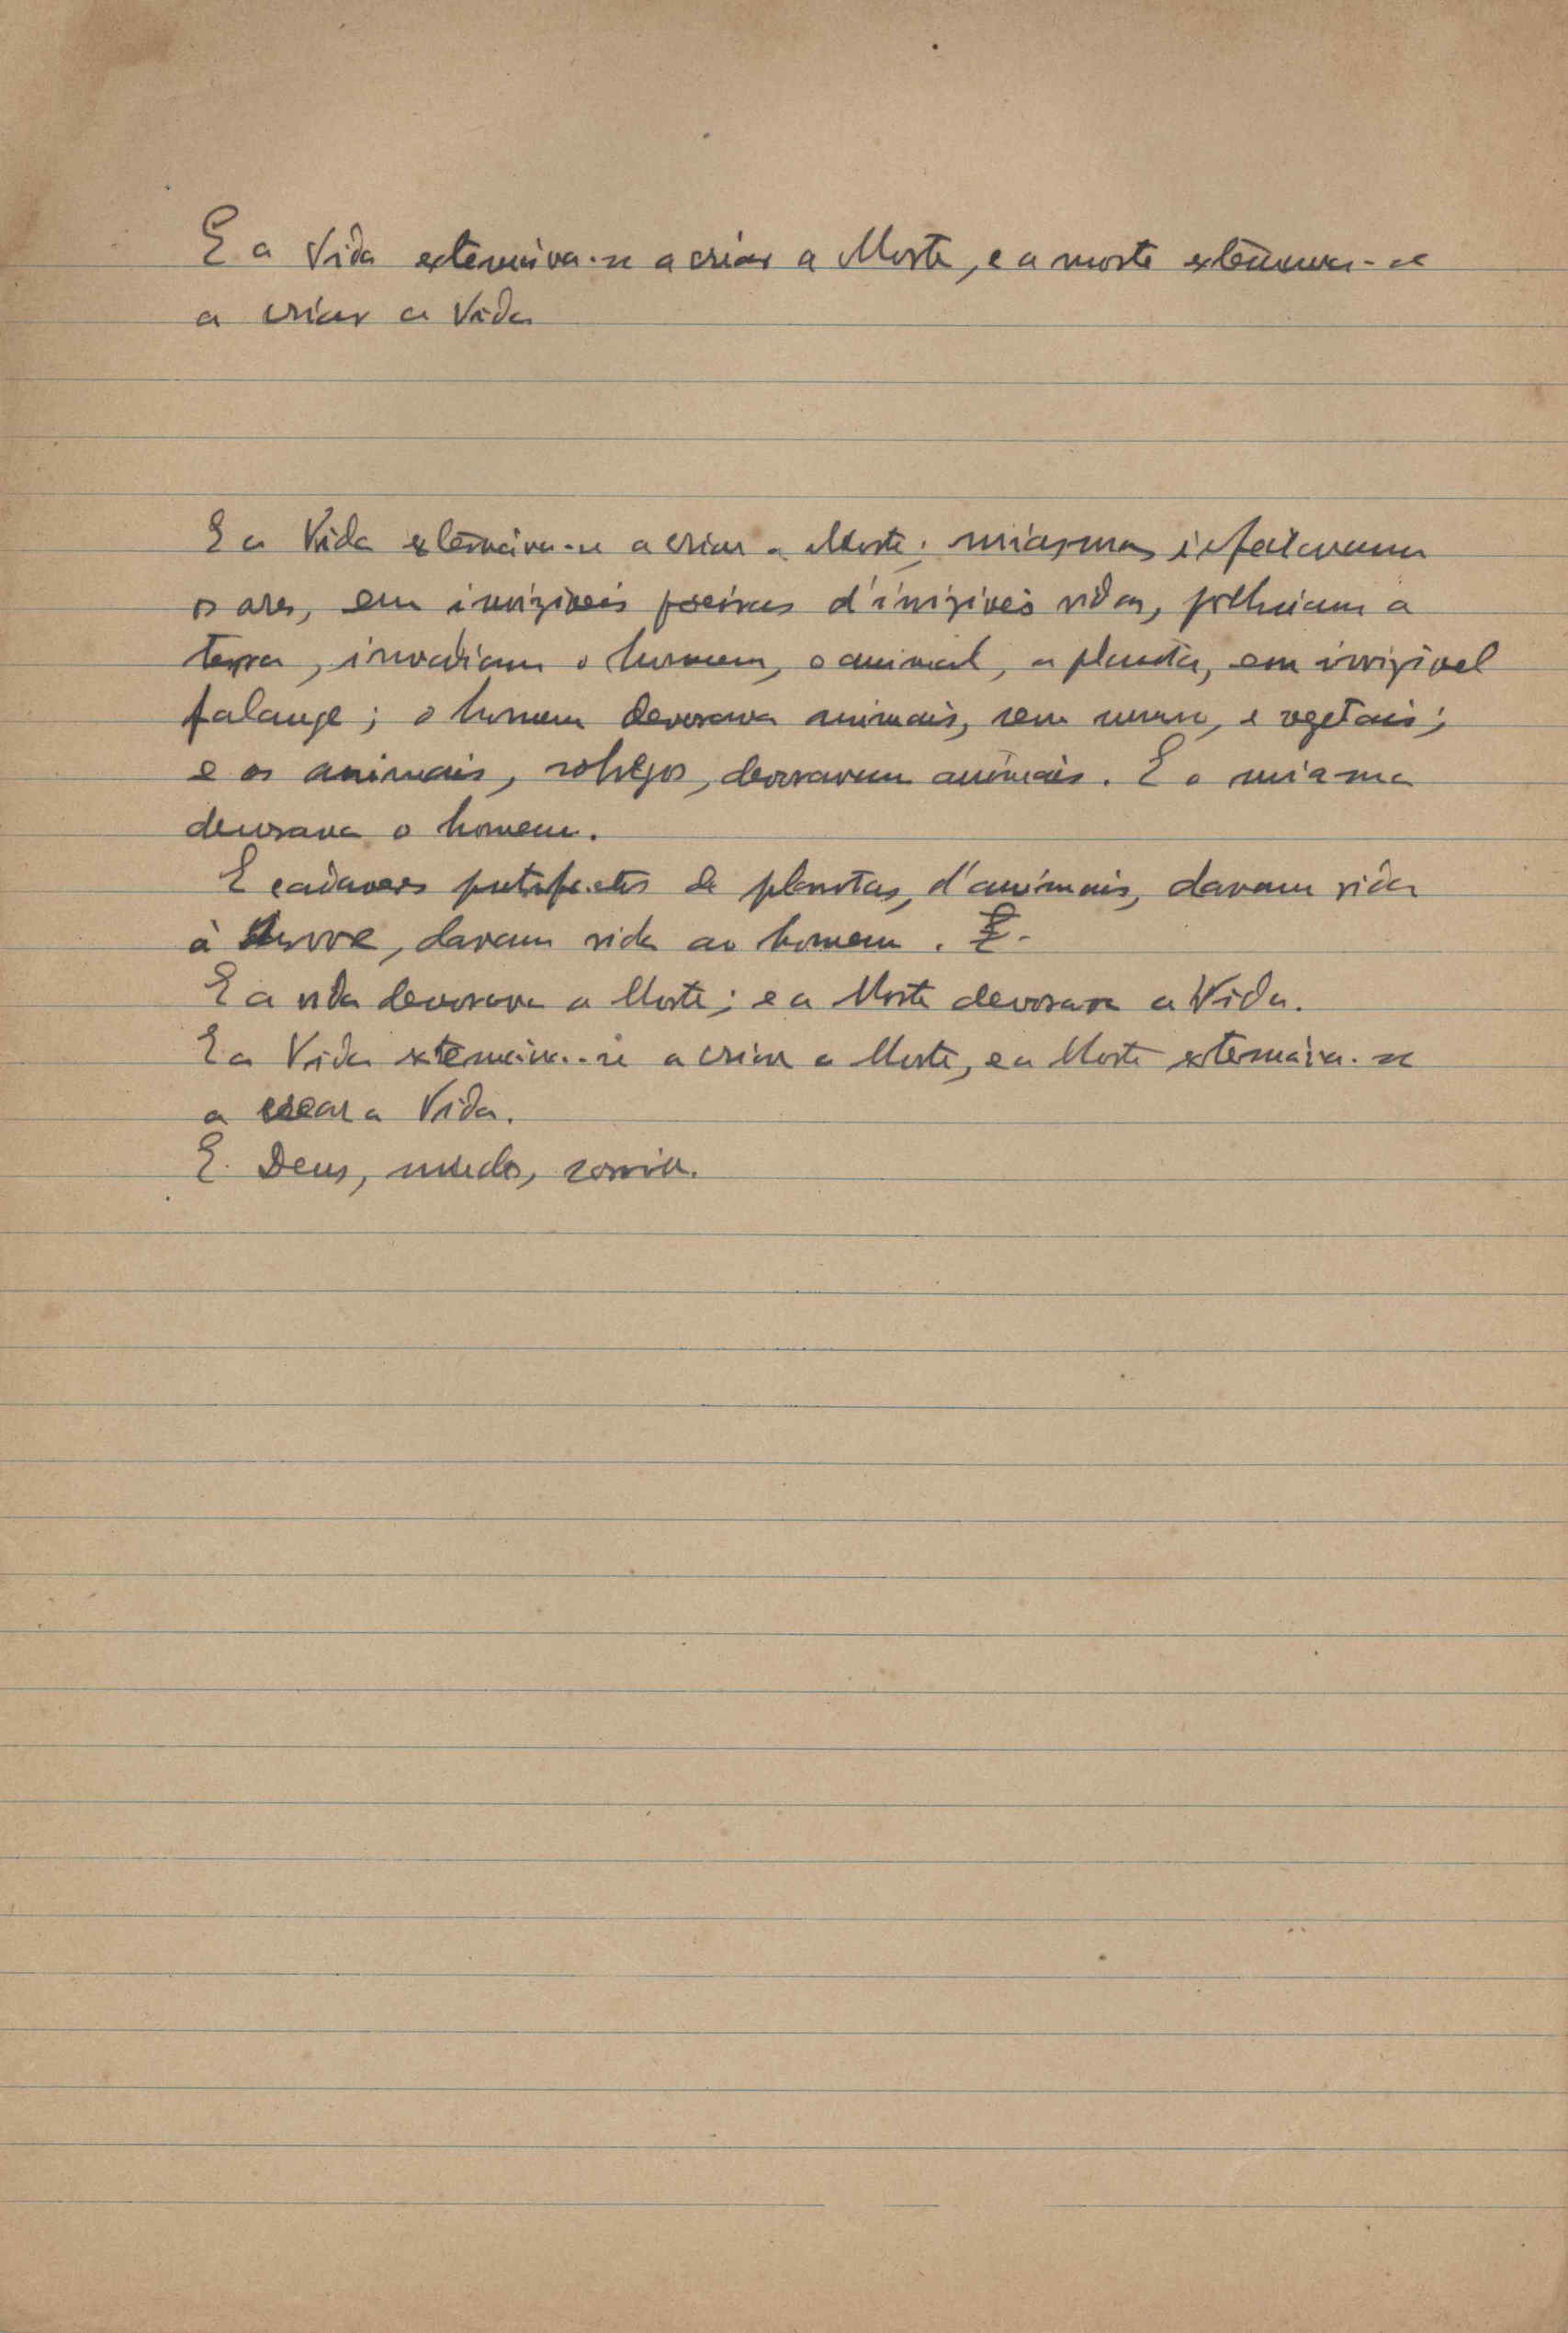 E a Vida extenuava-se a criar a Morte, e a morte extenuava-se
a criar a Vida
E a Vida extenuáva-se a criar a Morte; miasmas infectavam
os ares, em invizíveis poeiras d'invizíveis vidas, polluiam a
terra, invadiam o homem, o animal, a planta, em invizivel
falange; o homem devorava animais, sem numero, e vegetais;
e os animais, sofregos, devoravam animais. E o miasma
devorava o homem.
E cadaveres putrefactos de plantas, d'animais, davam vida
à arvore, davam vida ao homem.
E a vida devorava a Morte; e a Morte devorava a Vida.
E a Vida extenuáva-se a criar a Morte, e a Morte extenuáva-se
a crear a Vida.
E Deus, mudo, sorria.